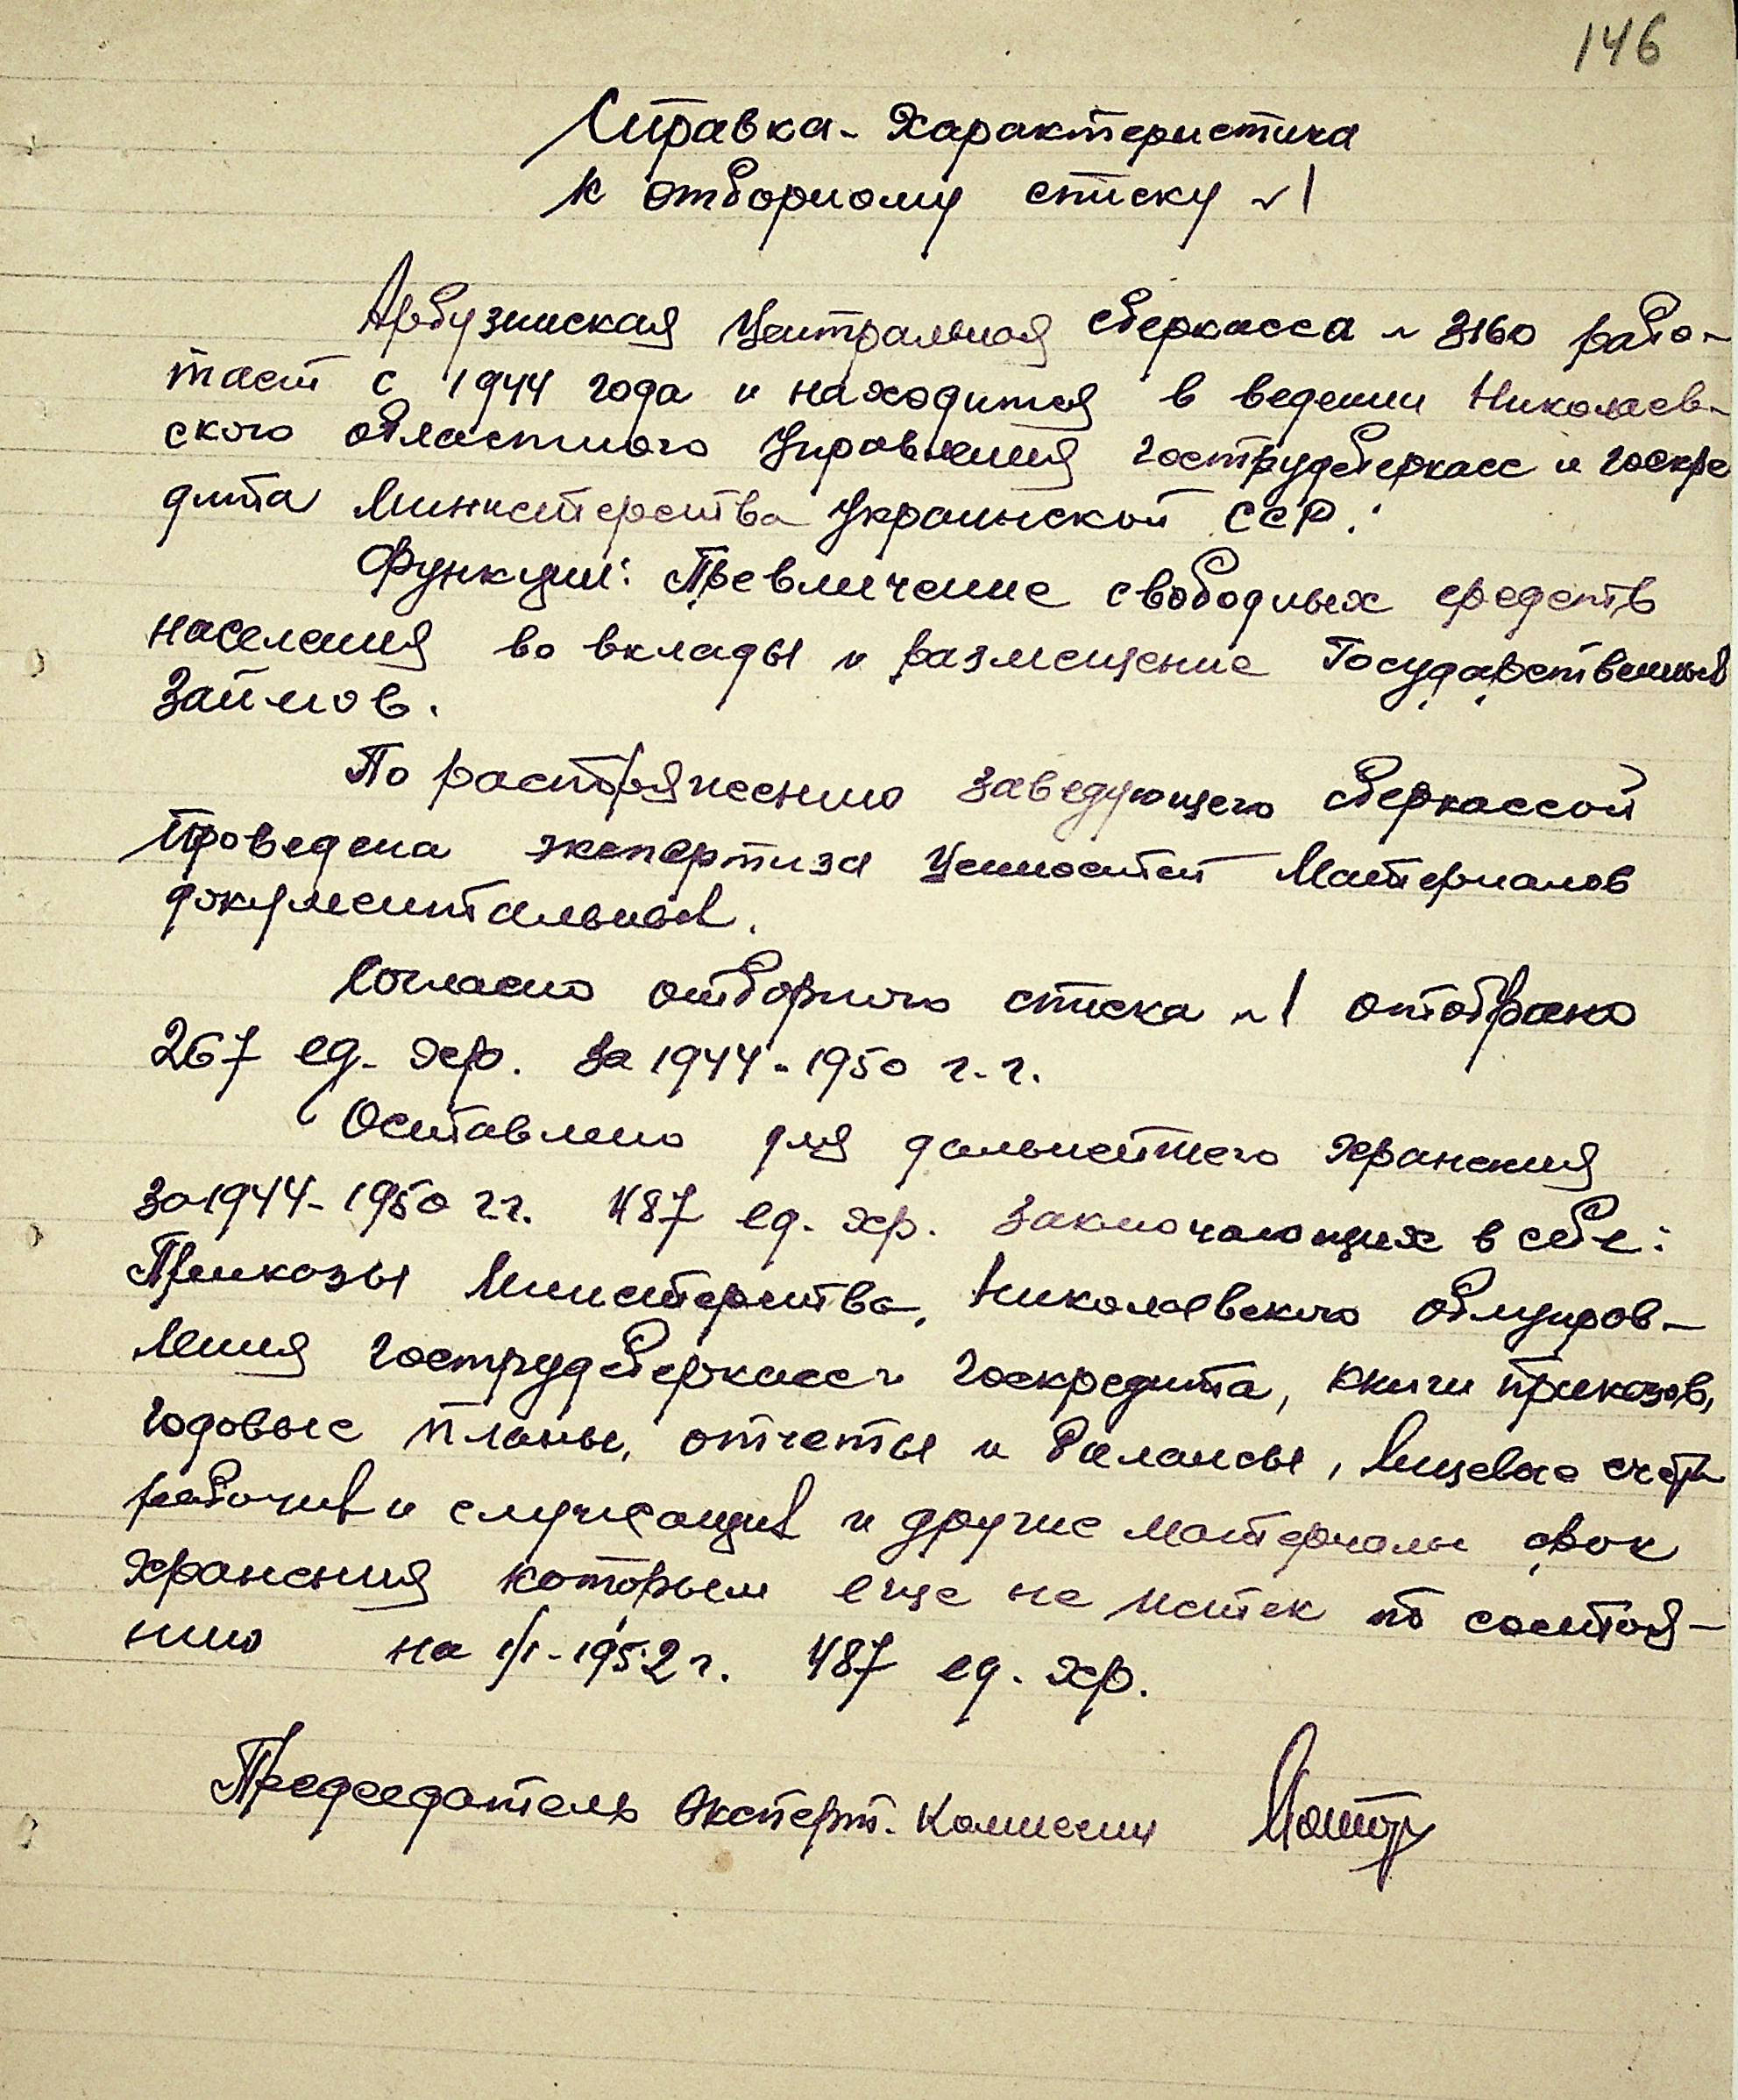 146
Справка-Характеристика
к отборному списку №1
Арбузинская Центральная сберкасса № 3160 рабо-
тает с 1944 года и находится в ведении Николаев-
ского областного Управления гострудсберкасс и госкре
дита Министерства Украинской ССР.
Функции: Превличение свободных средств
населения во вклады и размещение Государственных
Займов.
По распоряжению заведующего сберкассой
проведена экспертиза Ценностей Материалов
документальных.
Согласно отборного списка №1 отобрано
267 ед. хр. За 1944-1950 г.г.
Оставлено для дальнейшего хранения
за 1944-1950 гг. 487 ед. хр. заключающих в себе:
Приказы Министерства, Николаевского облуправ-
ления гострудсберкасс и госкредита, книги приказов,
годовые планы, отчеты и балансы, лицевые счета
рабочих и служащих и другие материалы срок
хранения которым еще не истек по состоя-
нию на 1/1-1952 г. 487 ед. хр.
Председатель Эксперт. Комиссии